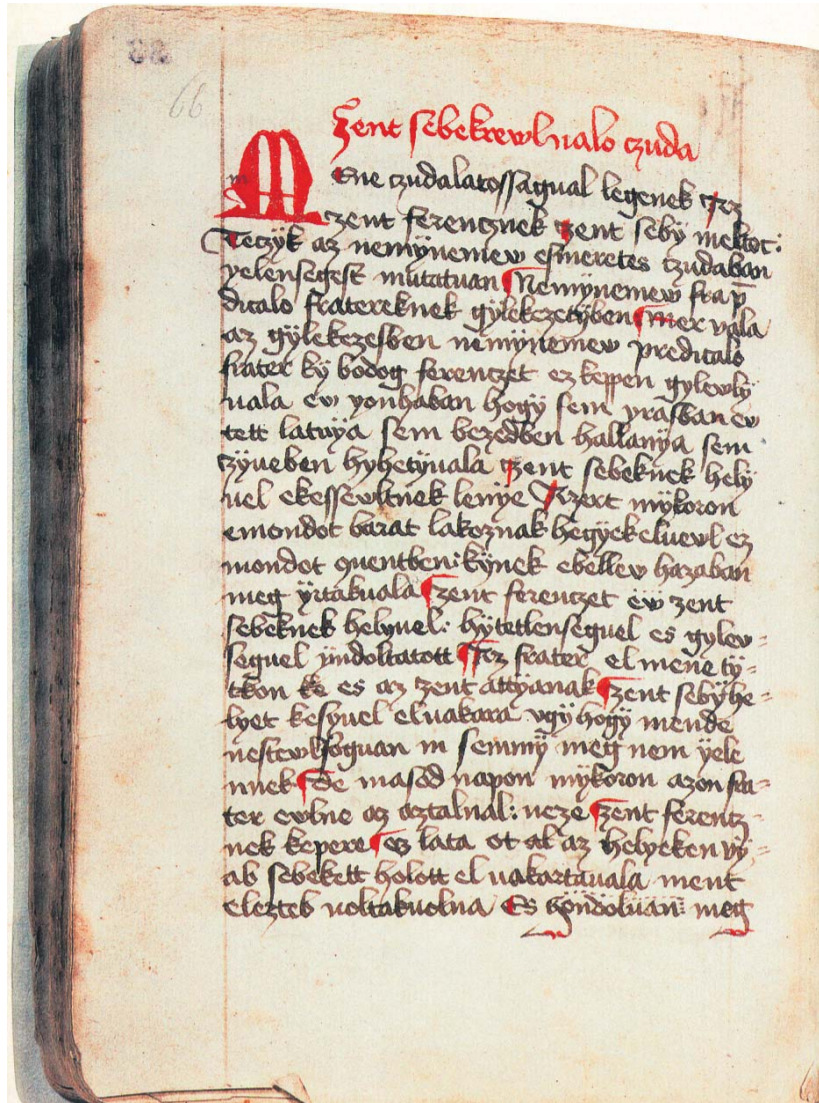 66
Zent sebekrewlualo czuda
Mene czudalatossagual legenek Ez
zent ferencznek zent seby meltoc:
Teczyk az nemÿnemew esmeretes czudaban
yelensegest mutatuan Nemÿnemew fra p̄
dicalo fratereknek gÿlekezetÿben mer vala
az gÿlekezesben nemÿnemew predicalo
frater kÿ bodog ferenczet ez keppen gÿlewlÿ
uala ew yonhaban hogÿ sem yrasban ew
tett latuÿa sem bezedben hallanÿa sem
zÿueben hÿhetÿuala zent sebeknek helÿ
uel ekessewltnek lenÿe Azert mÿkoron
emondot barat lakoznak hegÿekeluewl ez
mondot quentben: kÿnek ebellew hazaban
meg ÿrtakuala zent ferenczet ew zent
sebeknek helÿuel: hÿtetlenseguel es gÿlew-
seguel ÿndoltatott Ez frater el mene tÿ-
tkon ke es az zent attÿanak zent sebÿ he-
lÿet kesÿuel eluakara vgÿ hogÿ mende
nestewlfoguan m semmÿ meg nem ÿele
nnek De masod napon mÿkoron azon fra-
ter ewlne az aztalnal: neze zent ferencz-
nek kepere ez lata ot al az helÿeken vÿ-
ab sebekett holott el uakartauala ment
elezteb uoltakuolna Es gondoluan: meg